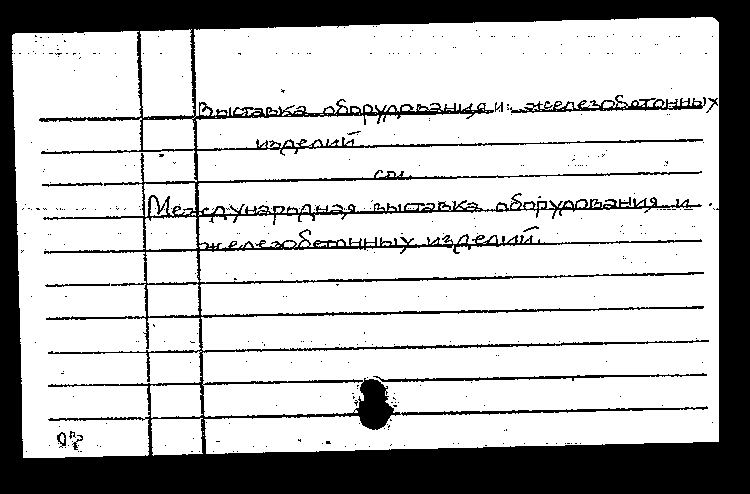 Выставка оборудования и железобетонных
изделий
см.
Международная выставка оборудования и
железобетонных изделий.